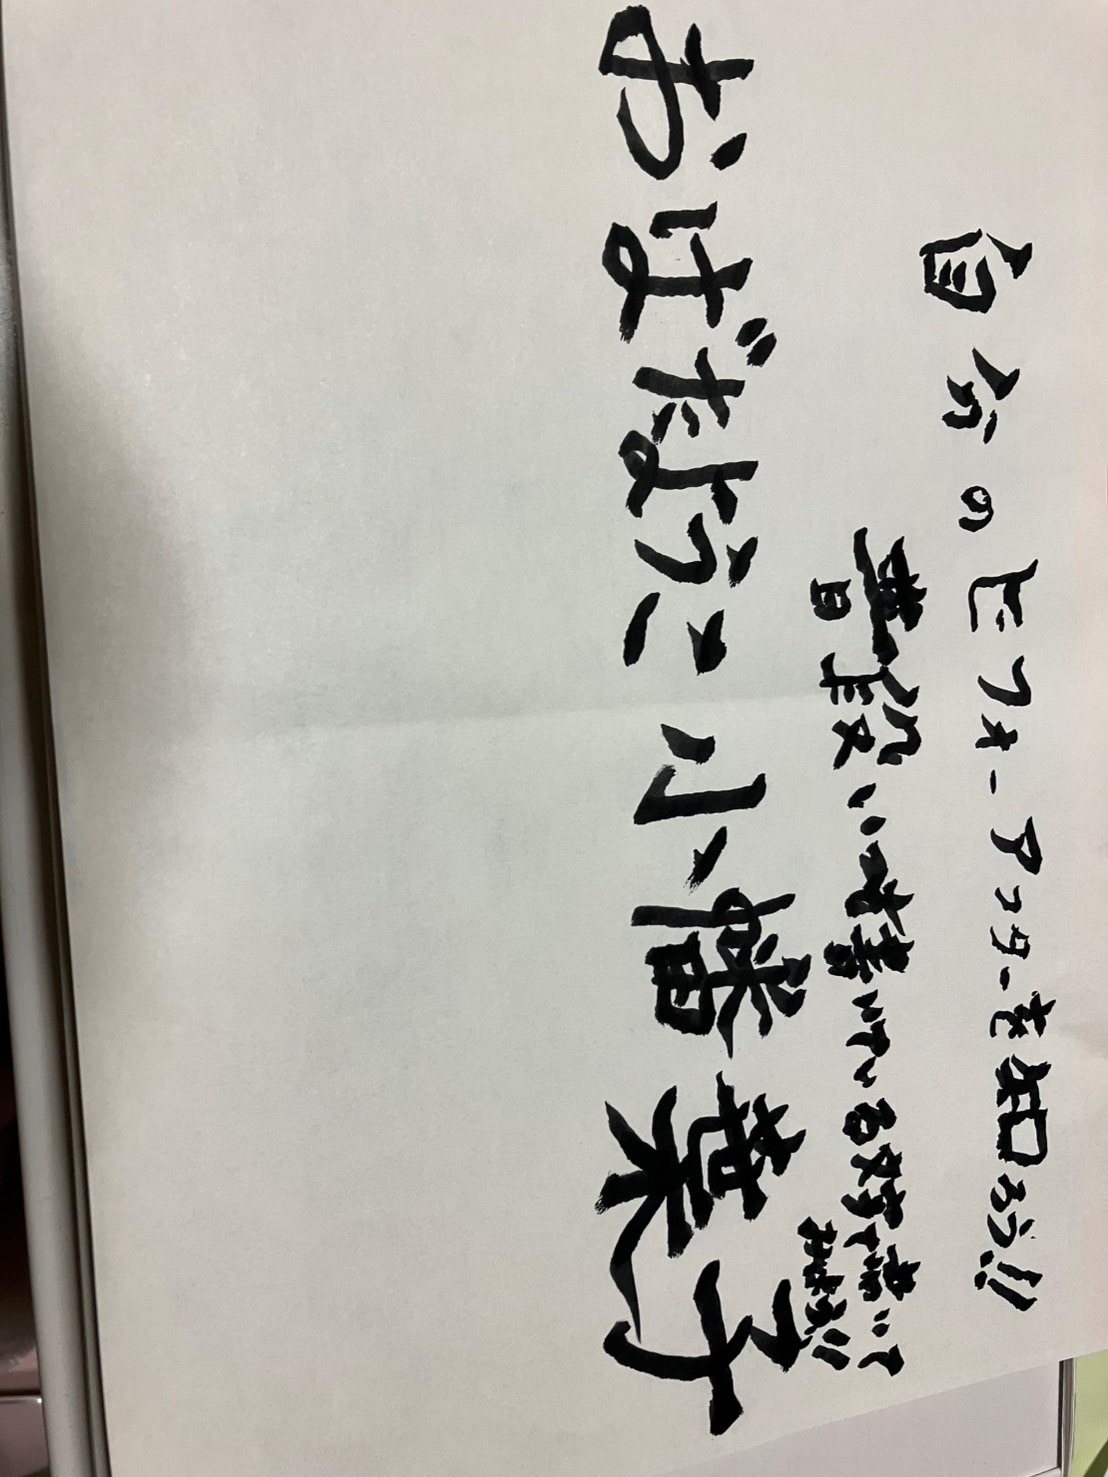 自分のビフォーアフターを知ろう!!
普段いつも書いている文字で書いて
みましょう!!
おばたようこ 小幡葉子